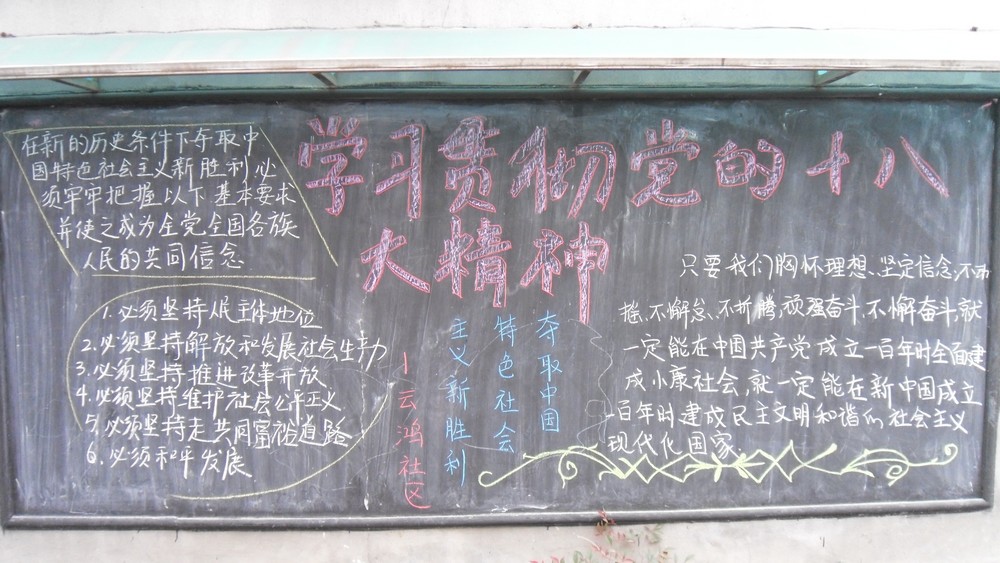 学习贯彻党的十八
大精神
在新的历史条件下夺取中
国特色社会主义新胜利必
须牢牢把握以下基本要求
并使之成为全党全国各族
人民的共同信念
1.必须坚持人民主体地位
2.必须坚持解放和发展社会生产力
3.必须坚持推进改革开放
4.必须坚持维护社会公平正义
5.必须坚持走共同富裕道路
6.必须和平发展
夺取中国
特色社会
主义新胜利
—云鸿社区
只要我们胸怀理想、坚定信念,不动
摇、不懈怠、不折腾,顽强奋斗、不懈奋斗,就
一定能在中国共产党成立一百年时全面建
成小康社会,就一定能在新中国成立
一百年时建成民主文明和谐的社会主义
现代化国家.